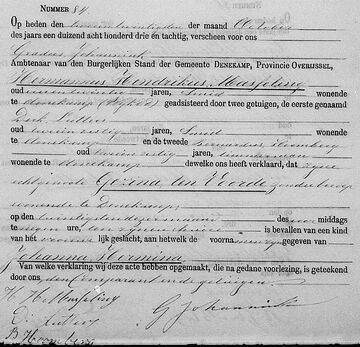 NUMMER 84
Op heden den twee en twintigsten der maand October
des jaars een duizend acht honderd drie en tachtig, verscheen voor ons
Gradus Johannink
Ambtenaar van den Burgerlijken Stand der Gemeente DENEKAMP, Provincie OVERIJSSEL,
Hermannus Hendrikus Masseling
oud een en twintig jaren, Smid wonende
te Denekamp geadsisteerd door twee getuigen, de eerste genaamd
Derk
oud jaren, Smid wonende
te Denekamp en de tweede Bernardus
oud jaren, timmerman
wonende te Denekamp dewelke ons heeft verklaard, dat zijne
echtgenoote Gezina ten Voorde zonder beroep
wonende te Denekamp
op den twintigsten dezer maand des middags
te negen ure, ten zijnen huize is bevallen van een kind
van het vrouwelijk geslacht, aan hetwelk de voornamen zijn gegeven van
Johanna Hermina
Van welke verklaring wij deze acte hebben opgemaakt, die na gedane voorlezing, is geteekend
door ons, den comparant en de getuigen.
H H Masseling
G Johannink
B